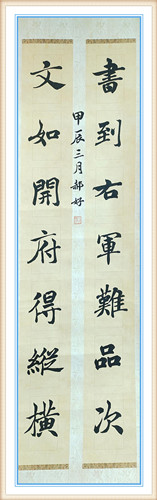 書到右軍難品次
文如開府得縱橫
甲辰三月郝好